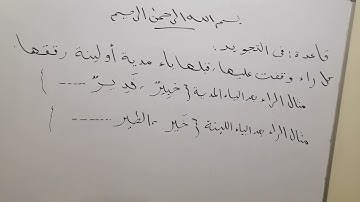 بسم الله الرحمن الرحيم
قاعدة: في التجويد:
كل راء وقفت عليها، قبلها ياء مدية أو لينة رققها.
مثال الراء بعد الياء المدية {خبيرٌ، قديرٌ ..... }
مثال الراء بعد الياء اللينة {خَير، الطير ....... }